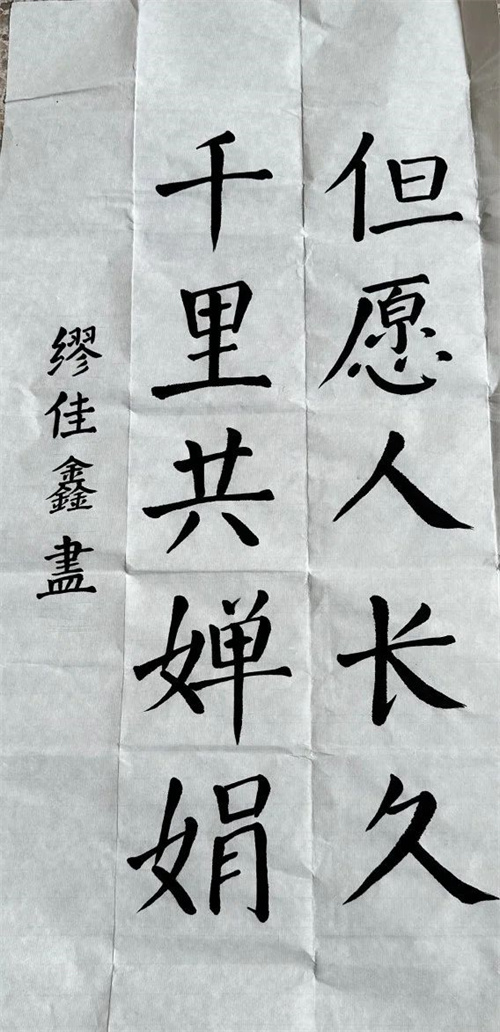 但愿人长久
千里共婵娟
缪佳鑫盡